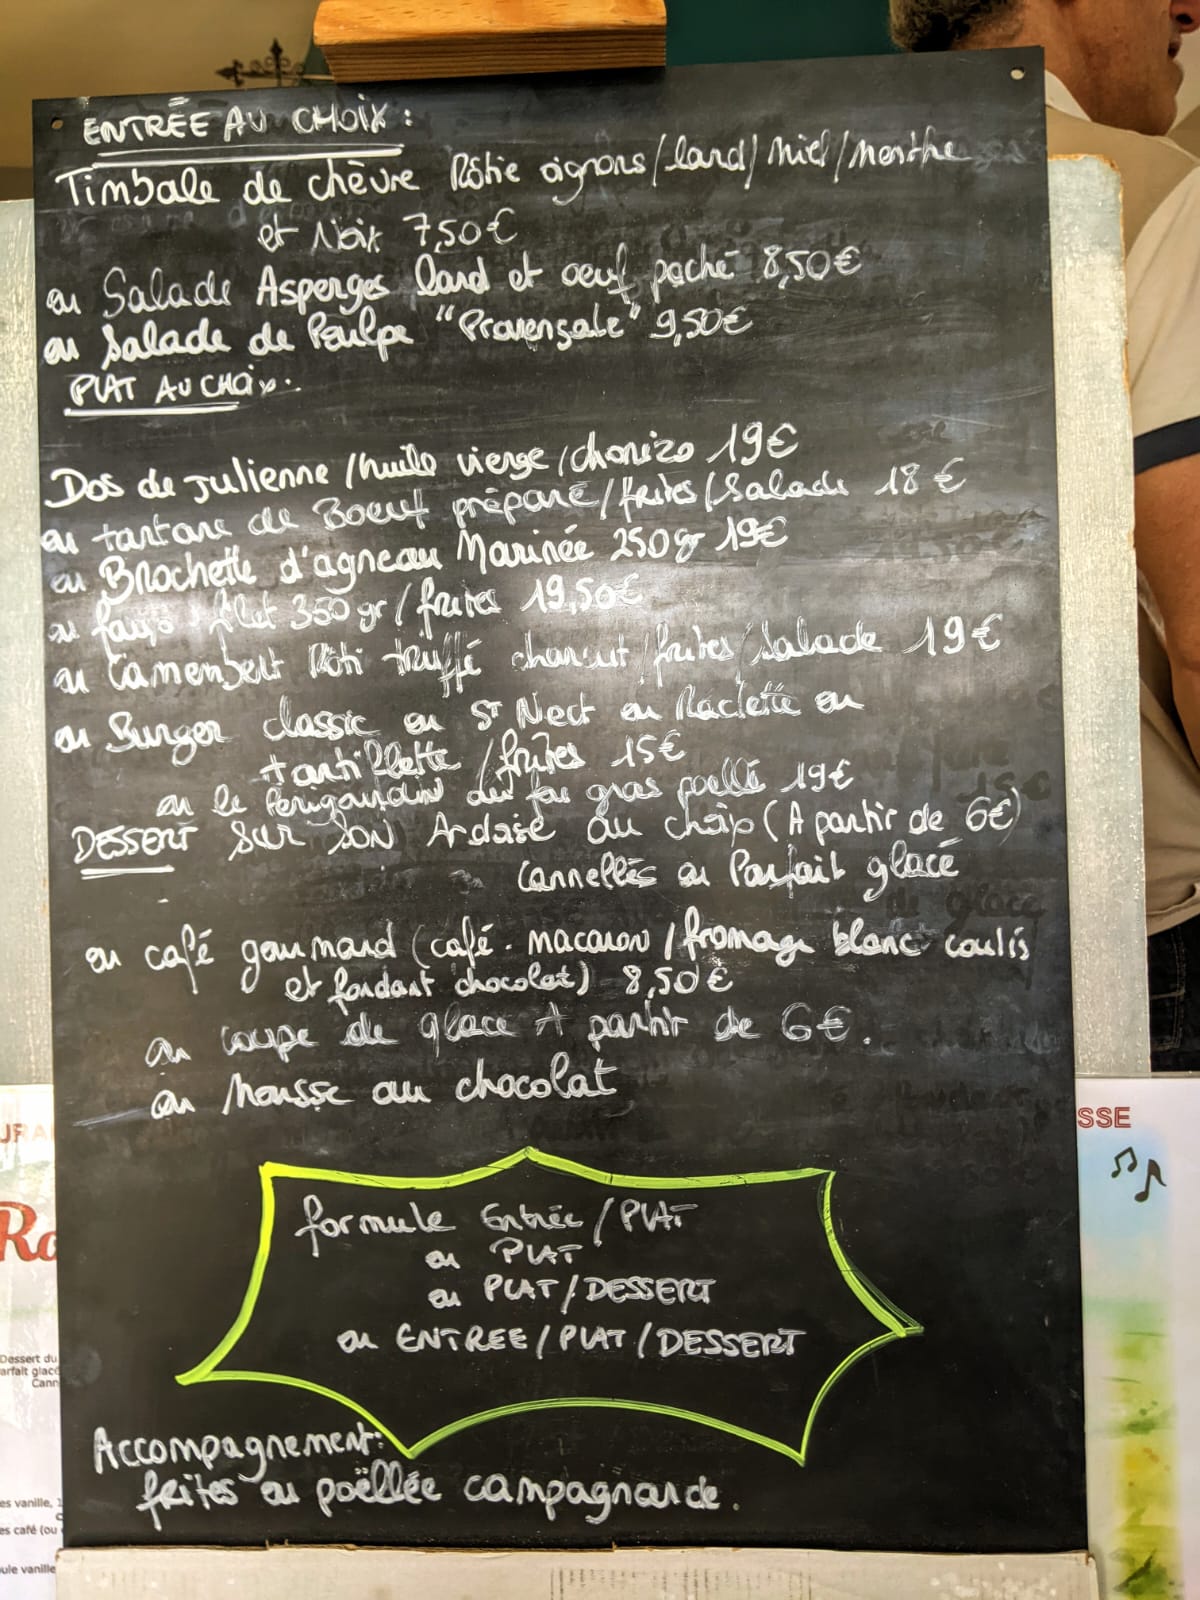 ENTRÉE AU CHOIX :
Timbale de chèvre Rôtie oignons/lard/miel/menthe
et Noix 7,50€
ou Salade Asperges lard et oeuf poché 8,50€
ou Salade de Poulpe "Provençale" 9,50€
PLAT AU CHOIX :
Dos de Julienne /huile vierge /chorizo 19€
ou tartare de Boeuf préparé/frites/Salade 18€
ou Brochette d'agneau Marinée 250gr 19€
ou filet 350gr/frites 19,50€
ou Camembert Rôti truffé charcut/frites/Salade 19€
ou Burger classic ou St Nect ou Raclette ou
tartiflette /frites 15€
ou le Périgourdin au foie gras poellé 19€
DESSERT SUR SON Ardoise au choix (A partir de 6€)
Cannellés ou Parfait glacé
ou café gourmand (café. macaron/fromage blanc coulis
et fondant chocolat) 8,50€
ou coupe de glace A partir de 6€.
ou Mousse au chocolat
formule Entrée/PLAT
ou PLAT
ou PLAT/DESSERT
ou ENTREE/PLAT/DESSERT
Accompagnement:
frites ou poëllée campagnarde.
SSE
Ro
Dessert du
arfait glacé
Cann
es vanille, 1
es café (ou
ule vanille